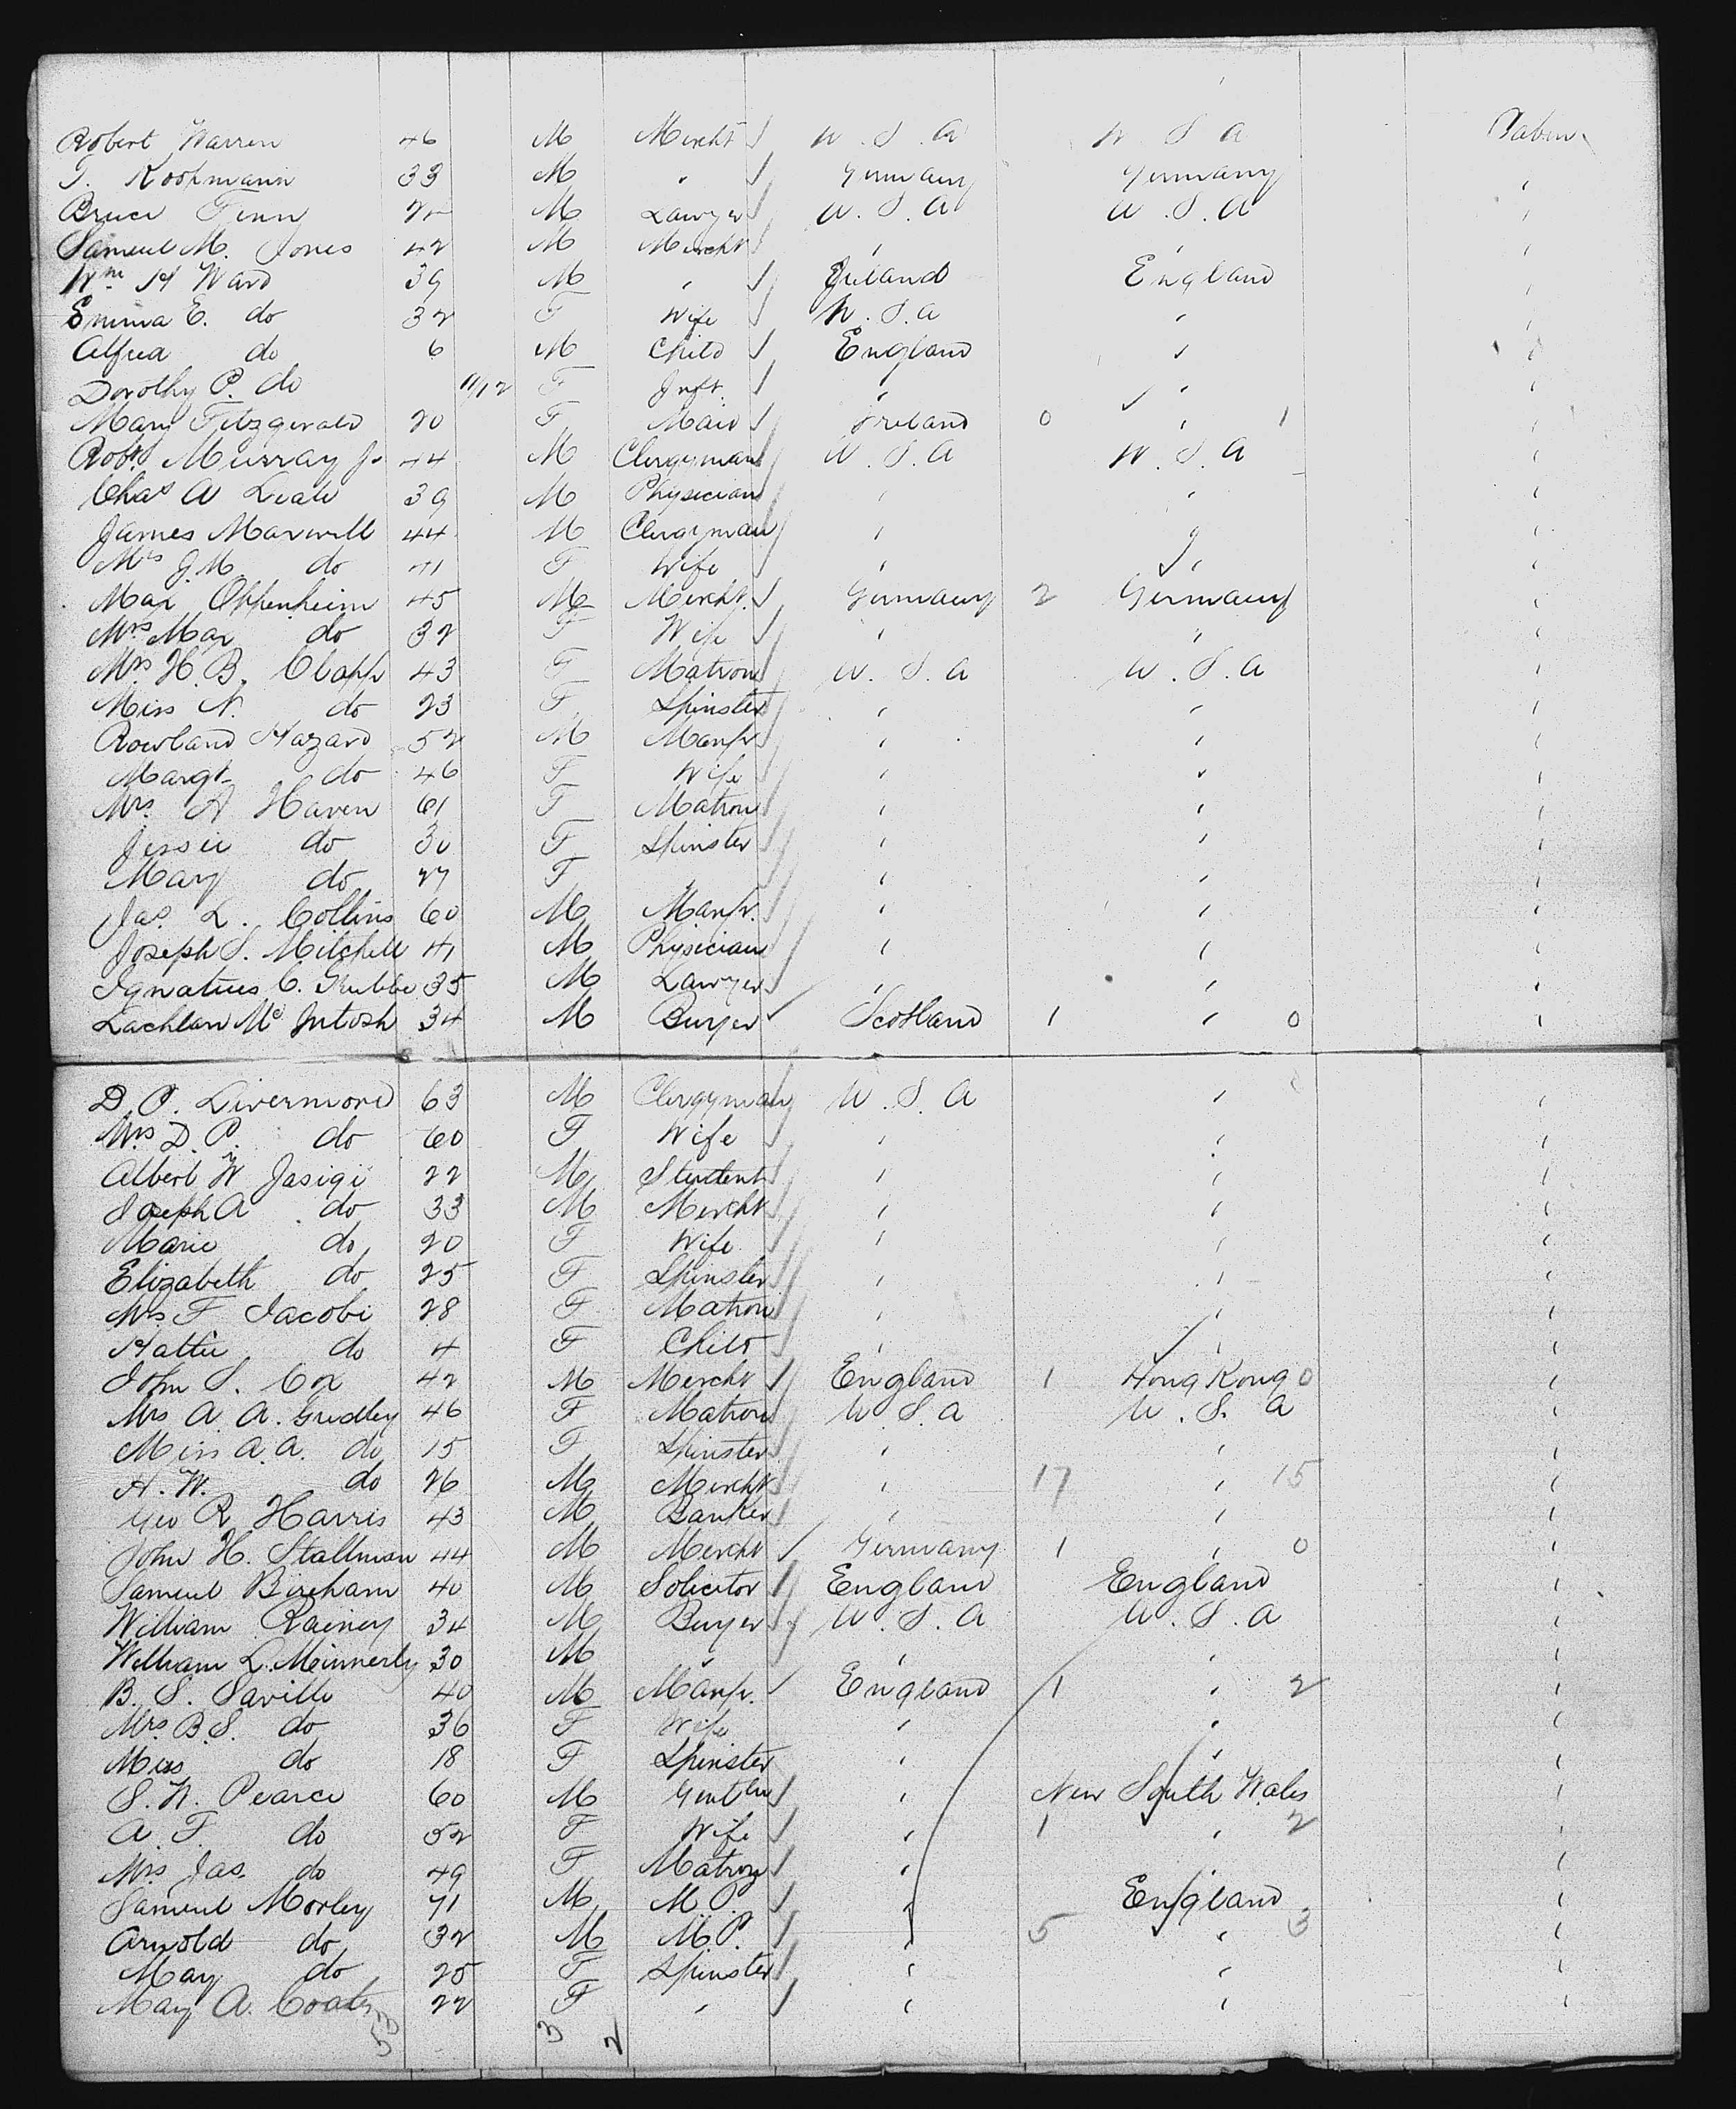 Robert Warren 46 M Mercht U.S.A U.S.A
T. Koopmann 33 M " Germany Germany "
Bruce Finn M Lawyer U.S.A U.S.A "
Samuel M. Jones 42 M Mercht " " "
Wm H Ward 39 M " Ireland England "
Emma E. do 32 F Wife U.S.A " "
Alfred do 6 M Child England " "
Dorothy P. do 11/12 F Inft. " " "
Mary Fitzgerald 20 F Maid Ireland 0 " 1 "
Robt Murray Jr 44 M Clergyman U.S.A U.S.A "
Chas A Leale 39 M Physician " " "
James Maxwell 44 M Clergyman " " "
Mrs J.M. do 41 F Wife " " "
Max Oppenheim 45 M Mercht. Germany 2 Germany "
Mrs Max do 32 F Wife " " "
Mrs H.B. Clapp 43 F Matron U.S.A U.S.A "
Miss N. do 23 F Spinster " " "
Rowland Hazard 52 M Manfr " " "
Margt do 46 F Wife " " "
Mrs. A Haven 61 F Matron " " "
Jessie do 30 F Spinster " " "
Mary do 27 F " " " "
Jas. L. Collins 60 M Manfr. " " "
Joseph S. Mitchell 41 M Physician " " "
Ignatius C. Grubb 35 M Lawyer " " "
Lachlan Mc Intosh 34 M Buyer Scotland 1 " 0 "
D.P. Livermore 63 M Clergyman U.S.A " "
Mrs D.P. do 60 F Wife " " "
Albert W Jasigi 22 M Student " " "
Joseph A do 33 M Mercht " " "
Marie do 20 F Wife " " "
Elizabeth do 25 F Spinster " " "
Mrs F Jacobi 28 F Matron " " "
Hattie do 4 F Child " " "
John S. Cox 42 M Mercht England 1 Hong Kong 0 "
Mrs A.A. Gridley 46 F Matron U.S.A U.S.A "
Miss A.A. do 15 F Spinster " " "
H.W. do 26 M Mercht " 17 " 15 "
Geo R Harris 43 M Banker " " "
John H. Stallman 44 M Mercht Germany 1 " 0 "
Samuel Bircham 40 M Solicitor England England "
William Rainey 34 M Buyer U.S.A U.S.A "
William L. Minnerly 30 M " " " "
B.S. Saville 40 M Manfr. England 1 " 2 "
Mrs. B.S. do 36 F Wife " " "
Miss do 18 F Spinster " " "
S.W. Pearce 60 M Gentlm " New South Wales "
A.F. do 52 F Wife " 1 " 2 "
Mrs. Jas. do 49 F Matron " " "
Samuel Morley 71 M M.P. " England "
Arnold do 32 M M.P. " 5 " 3 "
May do 25 F Spinster " " "
May A. Coats 22 F " " " "
53 3 2